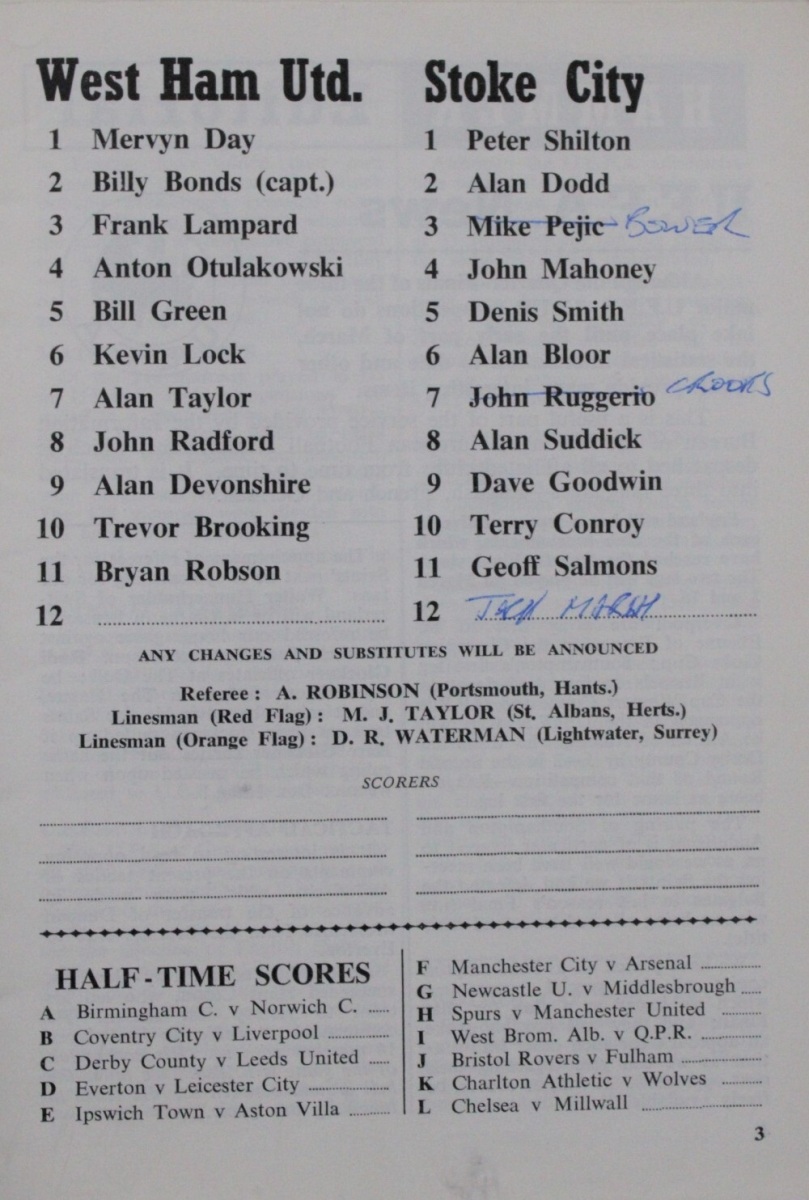 West Ham Utd.
1 Mervyn Day
2 Billy Bonds (capt.)
3 Frank Lampard
4 Anton Otulakowski
5 Bill Green
6 Kevin Lock
7 Alan Taylor
8 John Radford
9 Alan Devonshire
10 Trevor Brooking
11 Bryan Robson
12
Stoke City
1 Peter Shilton
2 Alan Dodd
3 Mike Pejic BOWER
4 John Mahoney
5 Denis Smith
6 Alan Bloor
7 John Ruggerio CROOKS
8 Alan Suddick
9 Dave Goodwin
10 Terry Conroy
11 Geoff Salmons
12 MARSH
ANY CHANGES AND SUBSTITUTES WILL BE ANNOUNCED
Referee : A. ROBINSON (Portsmouth, Hants.)
Linesman (Red Flag) : M. J. TAYLOR (St. Albans, Herts.)
Linesman (Orange Flag) : D. R. WATERMAN (Lightwater, Surrey)
SCORERS
HALF-TIME SCORES
A Birmingham C. v Norwich C.
B Coventry City v Liverpool
C Derby County v Leeds United
D Everton v Leicester City
E Ipswich Town v Aston Villa
F Manchester City v Arsenal
G Newcastle U. v Middlesbrough
H Spurs v Manchester United
I West Brom. Alb. v Q.P.R.
J Bristol Rovers v Fulham
K Charlton Athletic v Wolves
L Chelsea v Millwall
3